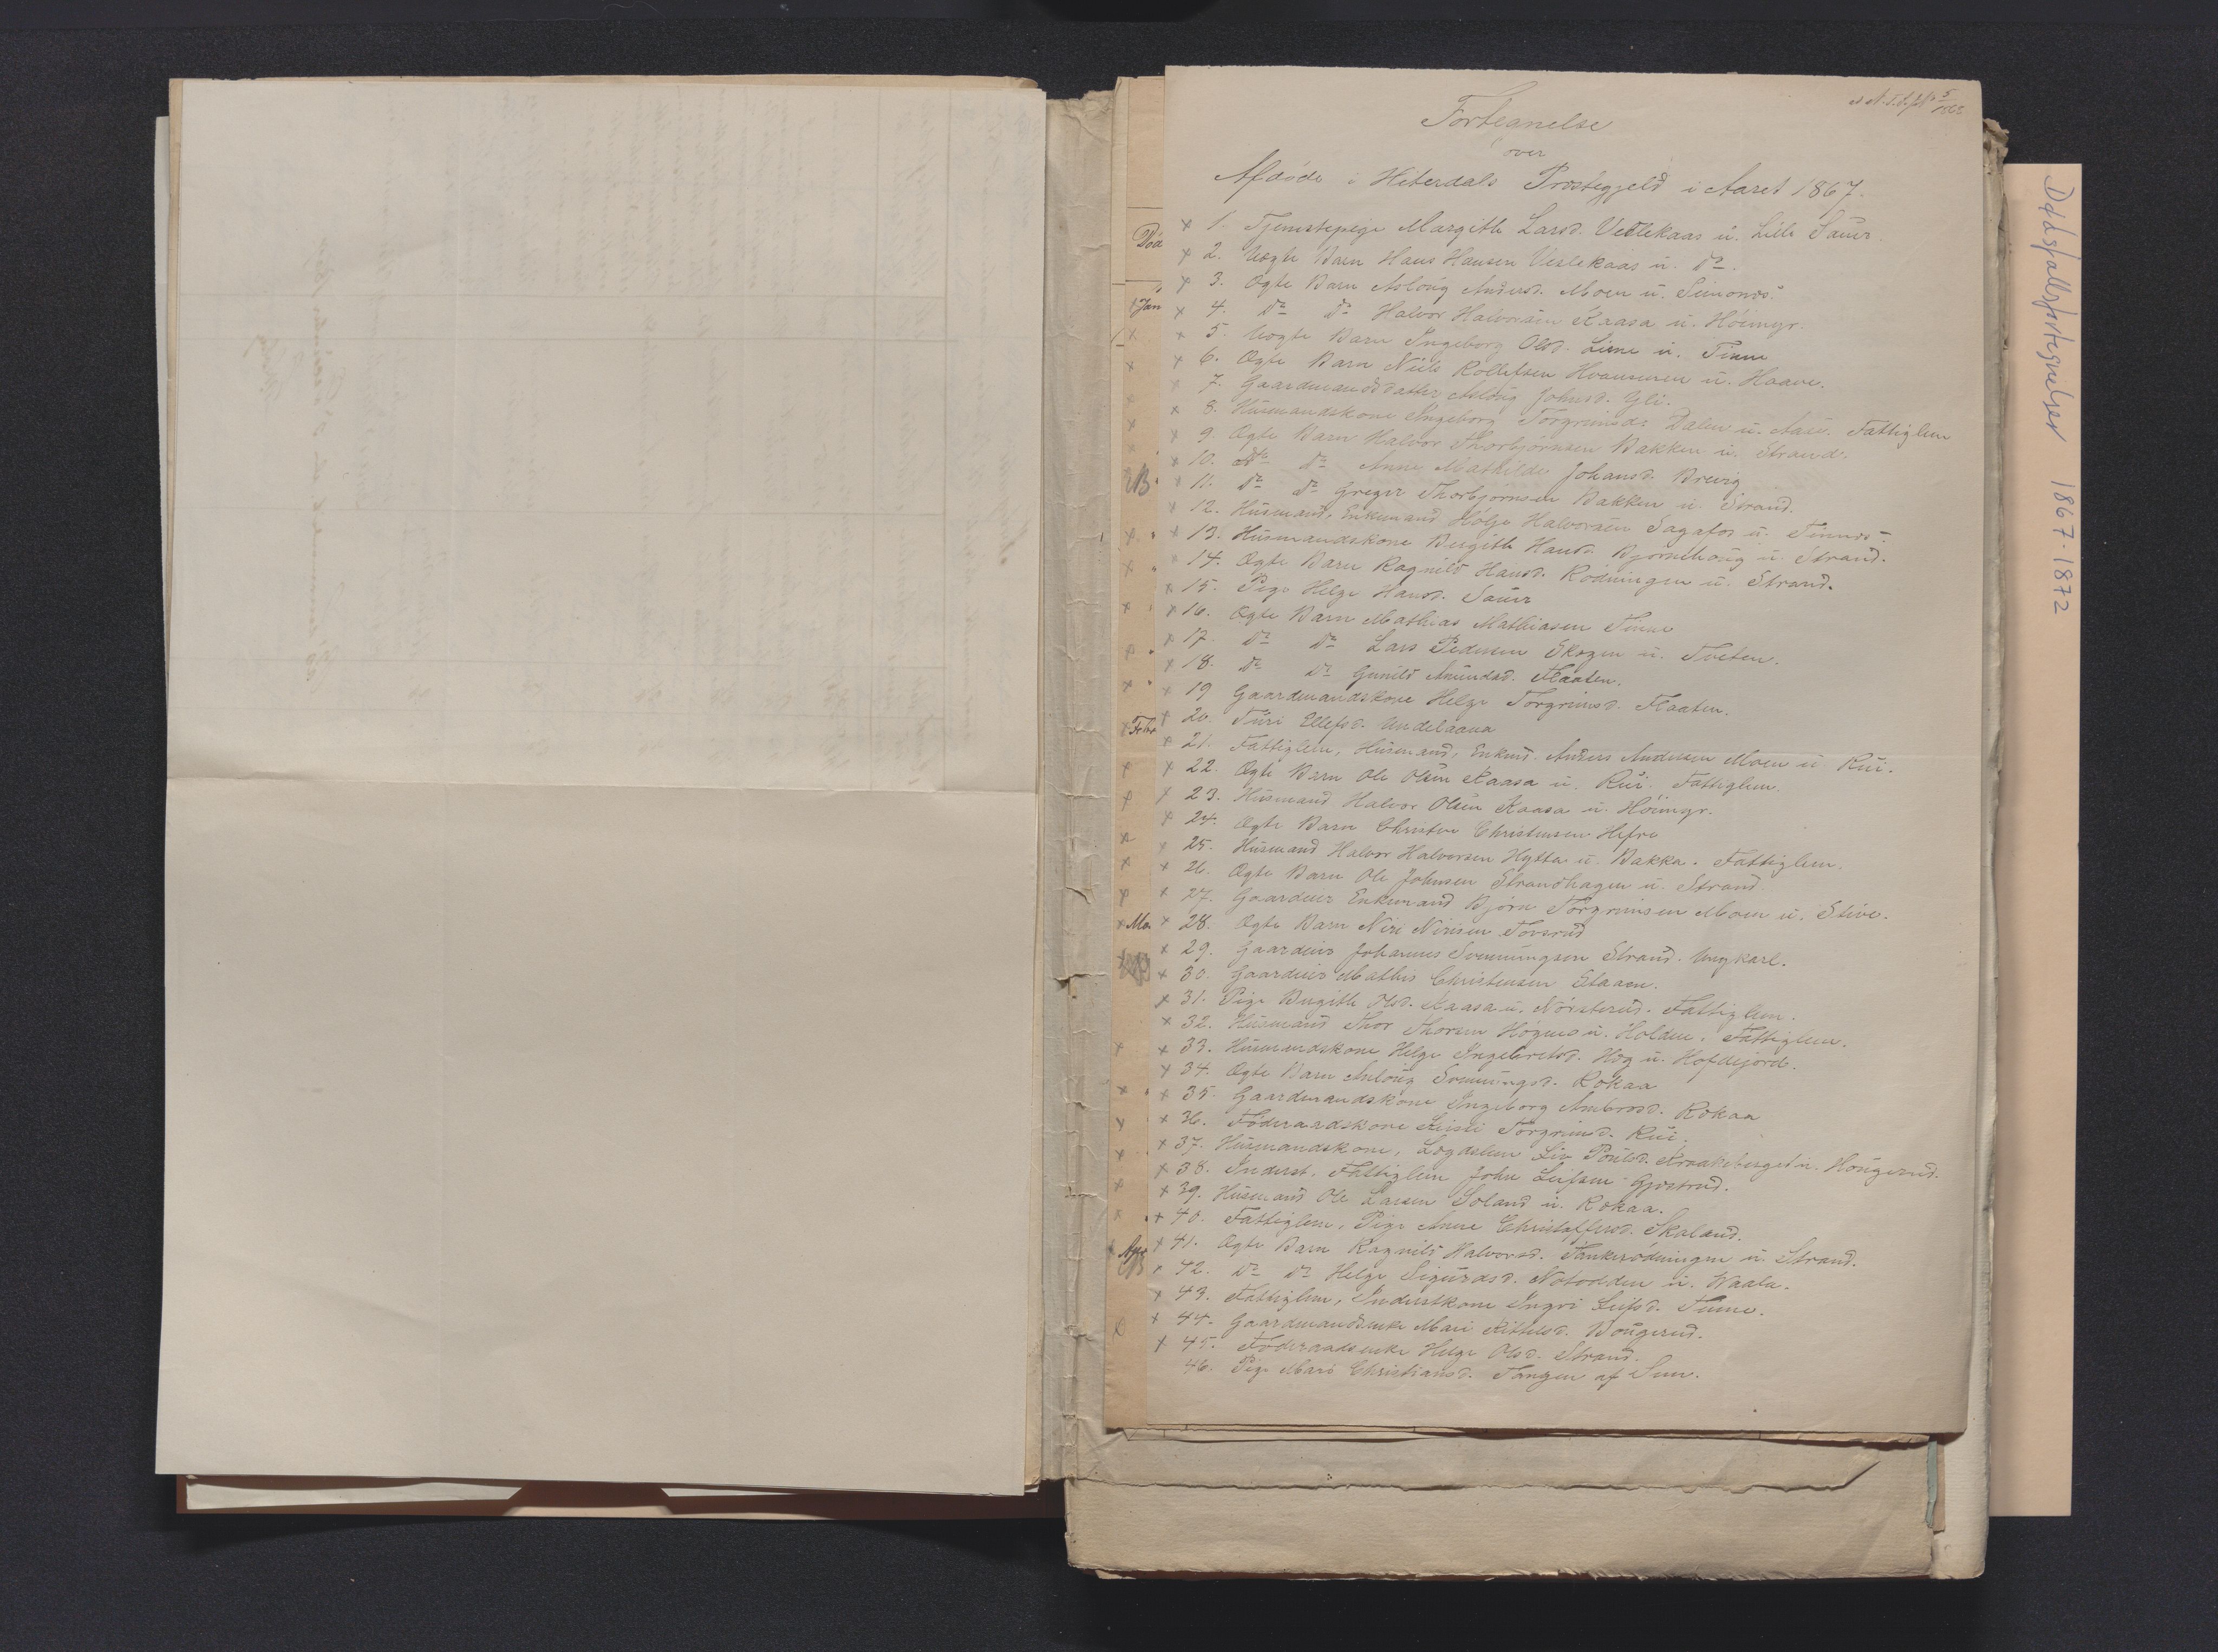 Forteanelse
over
Afdöde i Hiterdals Præstegjeld i Aaret 1867.
1. Tjenestepige Margith Larsd. Vetlekaas ú. Lille Saúer.
2. Uægte Barn Hans Hansen Veslekaas ú. do.
3. Ægte Barn Aslöúg Andersd. Moen ú. Semonds.
4. do do Halvor Halvorsen Kaasa ú. Höimyr.
5. Uægte Barn Ingeborg Olsd. Liene ú. Tinne
6. Ægte Barn Niels Rollefsen Hvaúmmen ú. Haave.
7. Gaardmandsdatter Aslöúg Johnsd. Gli.
8. Húsmandskone Ingeborg Torgrimsd. Dalen ú. Aase. Fattiglem
9. Ægte Barn Halvor Thorbjörnsen Bakken ú. Strand.
10. do do Anne Mathilde Johansd. Brevig
11. do do Greger Thorbjörnsen Bakken ú. Strand.
12. Húsmand, Enkemand Hölje Halvorsen Sagafos ú. Tinnes.
13. Húsmandskone Bergith Hansd. Bjornehoúg ú. Strand.
14. Ægte Barn Ragnild Hansd. Rödningen ú. Strand.
15. Pige Helge Hansd. Saúer
16. Ægte Barn Mathias Mathiasen Tinne
17. do do Lars Pedersen Skogen ú. Tveten.
18. do do Gúnild Amúndsd. Flaaten.
19 Gaardmandskone Helge Torgrimsd. Flaaten.
20. Túri Ellefsd. Úndelaana
21. Fattiglem, Húsmand, Enkmd. Anders Andersen Moen ú. Rúi.
22. Ægte Barn Ole Olsen Kaasa ú. Rúi. Fattiglem.
23. Húsmand Halvor Olsen Kaasa ú. Höimyr.
24. Ægte Barn Christen Christensen Hefre
25. Húsmand Halvor Halvorsen Hytta ú. Bakka. Fattiglem.
26. Ægte Barn Ole Johnsen Strandhagen ú. Strand.
27. Gaardeier Enkemand Björn Torgrimsen Moen ú. Slive.
28. Ægte Barn Niri Nirisen Tovsrúd
29. Gaardeier Johannes Sveinúngsen Strand. Úngkarl.
30. Gaardeier Mathis Christensen Staaen.
31. Pige Bergith Olsd. Kaasa ú. Nörsterúd. Fattiglem.
32. Húsmand Thor Thorsen Högens ú. Holden. Fattiglem.
33. Húsmandskone Helge Ingebretsd. Hæg ú. Hofdejord.
34. Ægte Barn Aslöúg Sveinúngsd. Rokaa
35. Gaardmandskone Ingeborg Ambrosd. Rokaa
36. Föderaadskone Kirsti Torgrimsd. Rúi.
37. Húsmandskone, Lægdslem Liv Poúlsd. Kraakeberget ú. Haúgerúd.
38. Inderst, Fattiglem John Leifsen Gjostrúd.
39. Húsmand Ole Larsen Soland ú. Rokaa.
40. Fattiglem, Pige Anne Christoffersd. Skaland.
41. Ægte Barn Ragnild Halvorsd. Tinkerödningen ú. Strand.
42. do do Helge Sigúrdsd. Notodden ú. Waala.
43. Fattiglem, Inderstkone Ingri Leifsd. Tinne.
44. Gaardmandsenke Mari Kittelsd. Boúgerúd.
45. Föderaadsenke Helge Olsd. Strand.
46. Pige Marö Christiansd. Tangen af Sem.
Död
Jan
Febr
Ma
Apr
Dødsfallsfortegnelser 1867-1872